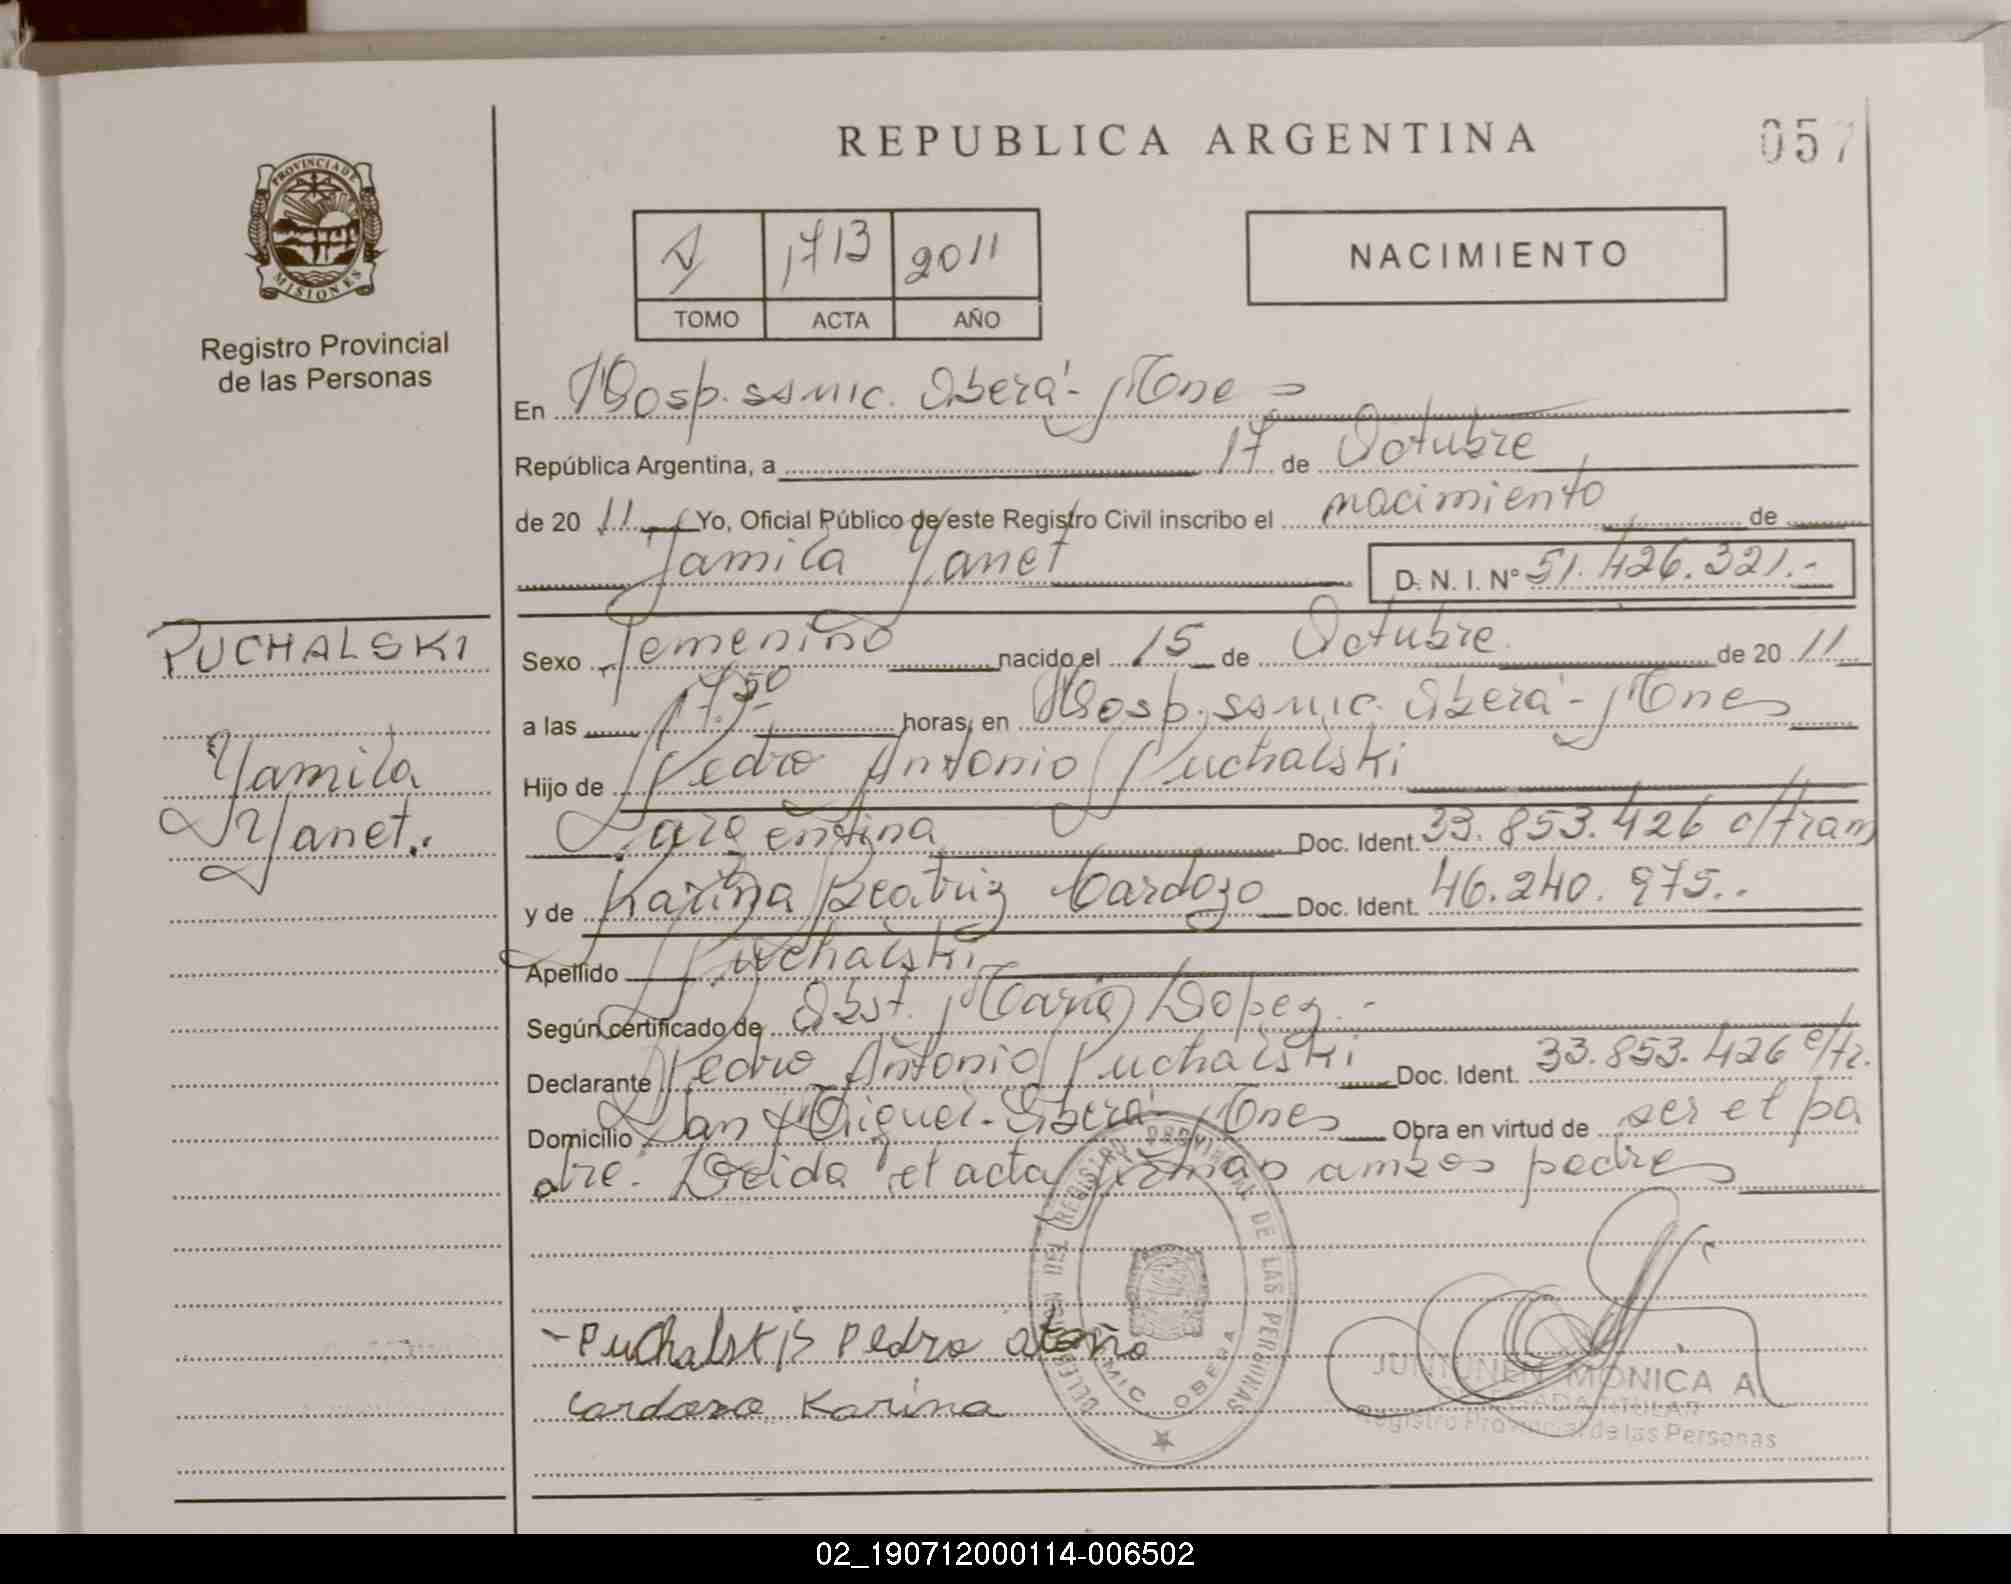 REPUBLICA ARGENTINA
057
PROVINCIA DE
MISIONES
Registro Provincial
de las Personas
1713 2011
TOMO ACTA AÑO
NACIMIENTO
En Hosp. ssmic. Oberá - Mones
República Argentina, a 17 de Octubre
de 20 11 Yo, Oficial Público de este Registro Civil inscribo el nacimiento de
Yamila Yanet D. N. I. Nº 51.426.321.-
PUCHALSKI
Sexo Femenino nacido el 15 de Octubre de 20 11
a las 17.50 horas, en Hosp. ssmic. Oberá - Mones
Yamila
Yanet.
Hijo de Pedro Antonio Puchalski
Argentina Doc. Ident. 33.853.426 c/tram
y de Karina Beatriz Cardozo Doc. Ident. 46.240.975..
Apellido Puchalski
Según certificado de Obst. Maria Lopez.-
Declarante Pedro Antonio Puchalski Doc. Ident. 33.853.426 c/tr.
Domicilio San Miguel - Oberá - Mones Obra en virtud de ser el pa
dre. Leida el acta firman ambos padres
DEL REGISTRO PROVINCIAL DE LAS PERSONAS
MIC OBERA
Puchalski Pedro
Cardozo Karina
JUNTUNEN MONICA A.
Registro Provincial de las Personas
02_190712000114-006502